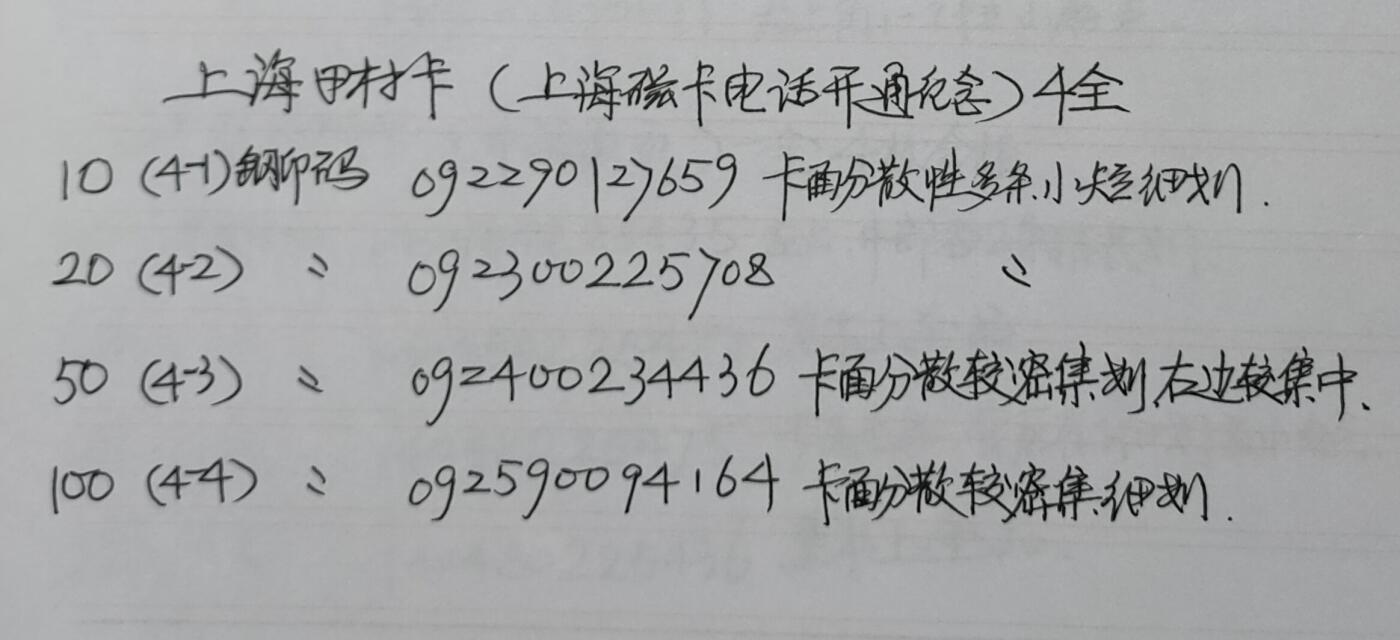 上海田村卡（上海磁卡电话开通纪念）4全
10（4-1）钢印码 092290127659 卡面分散性多条小短细划.
20（4-2）〃 092300225708 〃
50（4-3）〃 092400234436 卡面分散较密集划,右边较集中、
100（4-4）〃 092590094164 卡面分散较密集细划.